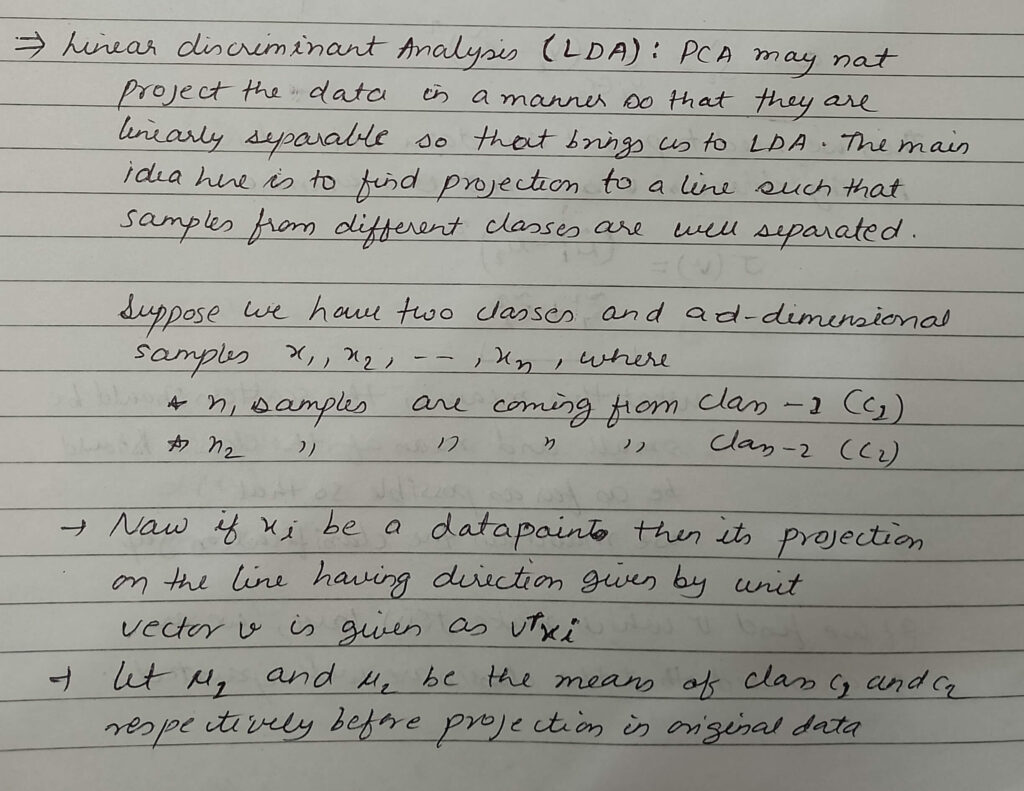 ⇒ Linear discriminant Analysis (LDA) : PCA may not
project the data in a manner so that they are
linearly separable so that brings us to LDA. The main
idea here is to find projection to a line such that
samples from different classes are well separated.
Suppose we have two classes and a d-dimensional
samples x₁, x₂, --, xₙ, where
* n₁ samples are coming from class -1 (C₁)
* n₂ ,, ,, ,, ,, class-2 (C₂)
→ Now if xᵢ be a datapoints then its projection
on the line having direction given by unit
vector v is given as vᵀxᵢ
→ let μ₁ and μ₂ be the means of class C₁ and C₂
respectively before projection in original data